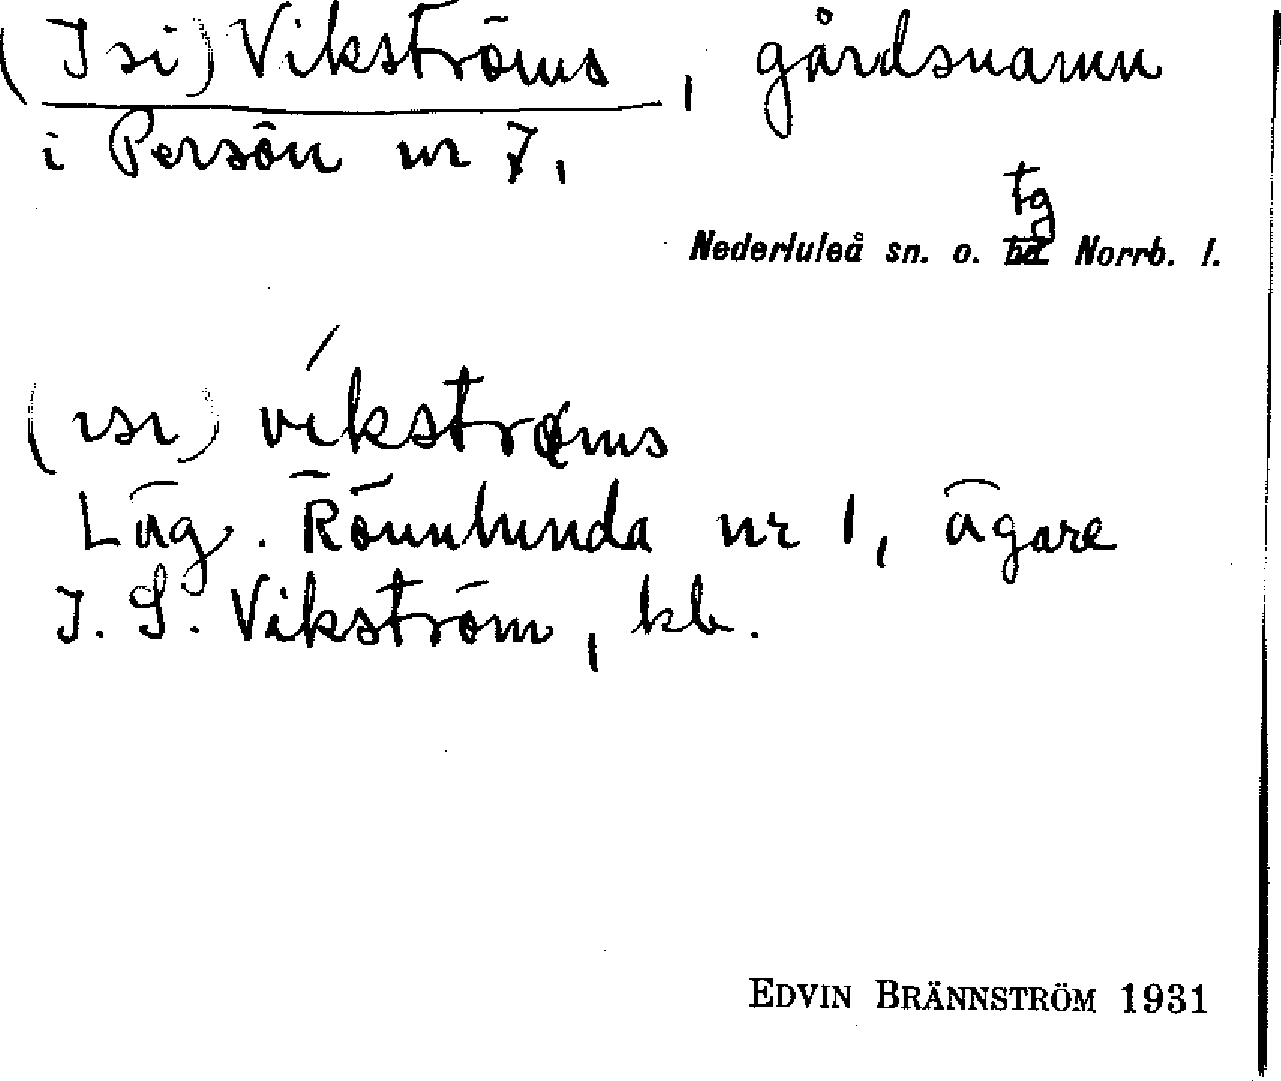 (Isi) Vikströms, gårdsnamn
i Persön nr 7,
tg
Nederluleå sn. o. hd Norrb. l.
(ısı) víkstrøms
Läg. Rönnlunda nr 1, ägare
J. S. Vikström, kb.
EDVIN BRÄNNSTRÖM 1931